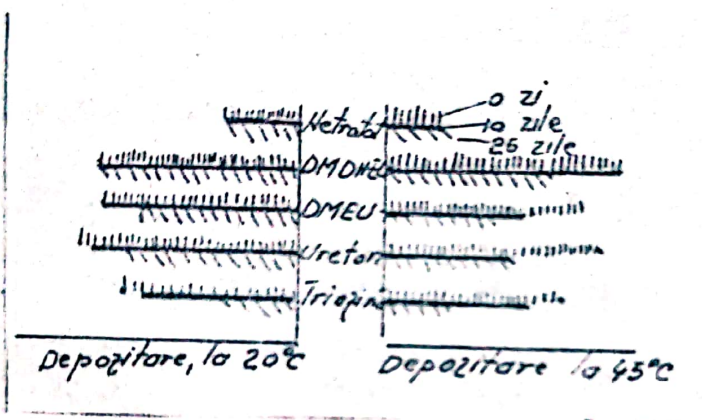 0 zi
Netratat
10 zile
25 zile
DMDHEU
DMEU
Uretan
Triazin
Depozitare, la 20°C
Depozitare la 45°C